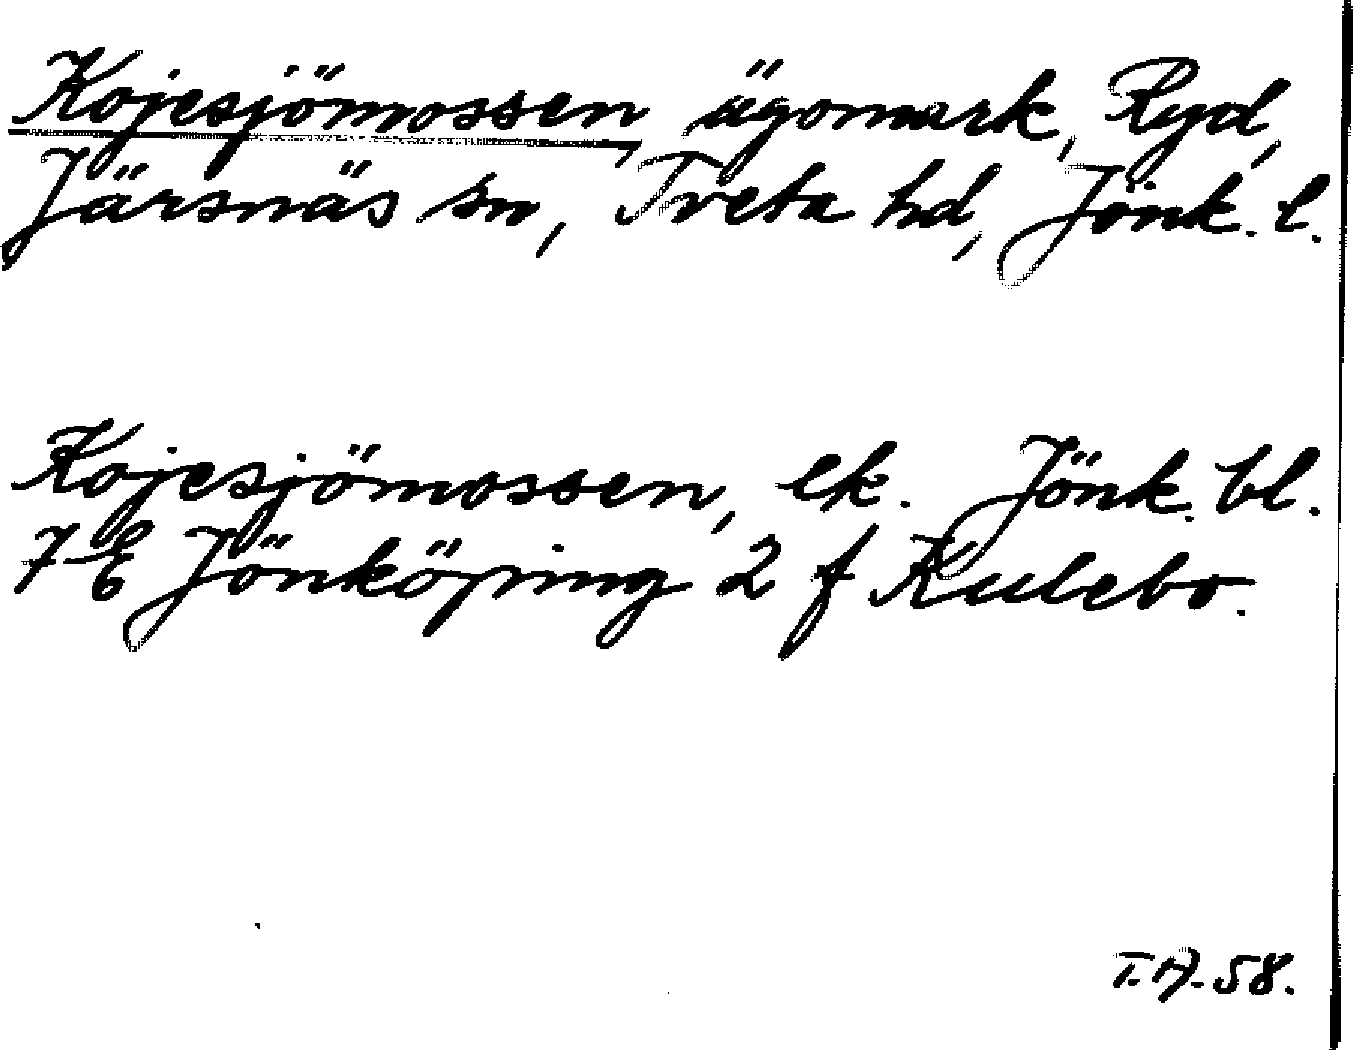 Kojesjömossen, ägomark, Ryd,
Järsnäs sn, Tveta hd, Jönk. l.
Kojesjömossen, ek. Jönk. bl.
7 E Jönköping 2 f Kulebo.
T.A. 58.